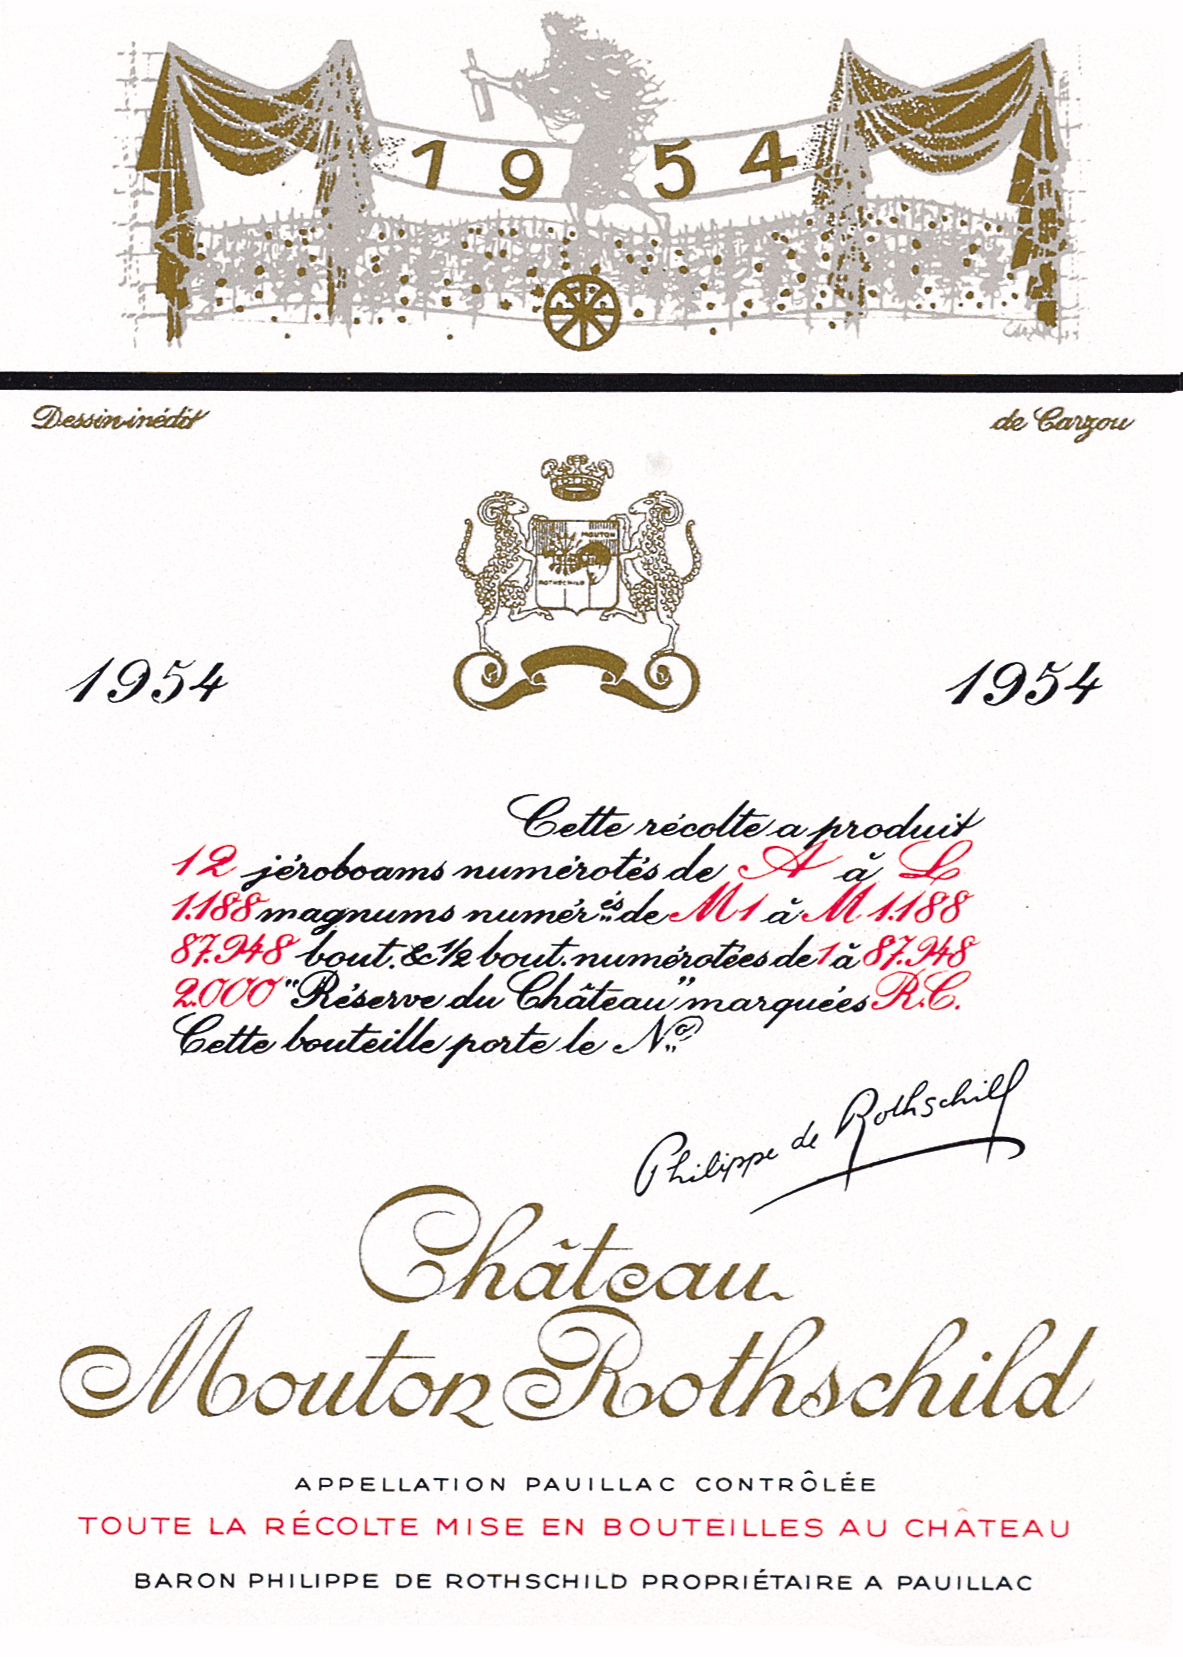 1954
Dessin inédit
de Carzou
MOUTON
ROTHSCHILD
1954
1954
Cette récolte a produit
12 jéroboams numérotés de A à L
1.188 magnums numérés de M1 à M 1.188
87.948 bout. & 1/2 bout. numérotées de 1 à 87.948
2.000 "Réserve du Château" marquées R.C.
Cette bouteille porte le No
Philippe de Rothschild
Château
Mouton Rothschild
APPELLATION PAUILLAC CONTRÔLÉE
TOUTE LA RÉCOLTE MISE EN BOUTEILLES AU CHÂTEAU
BARON PHILIPPE DE ROTHSCHILD PROPRIÉTAIRE A PAUILLAC